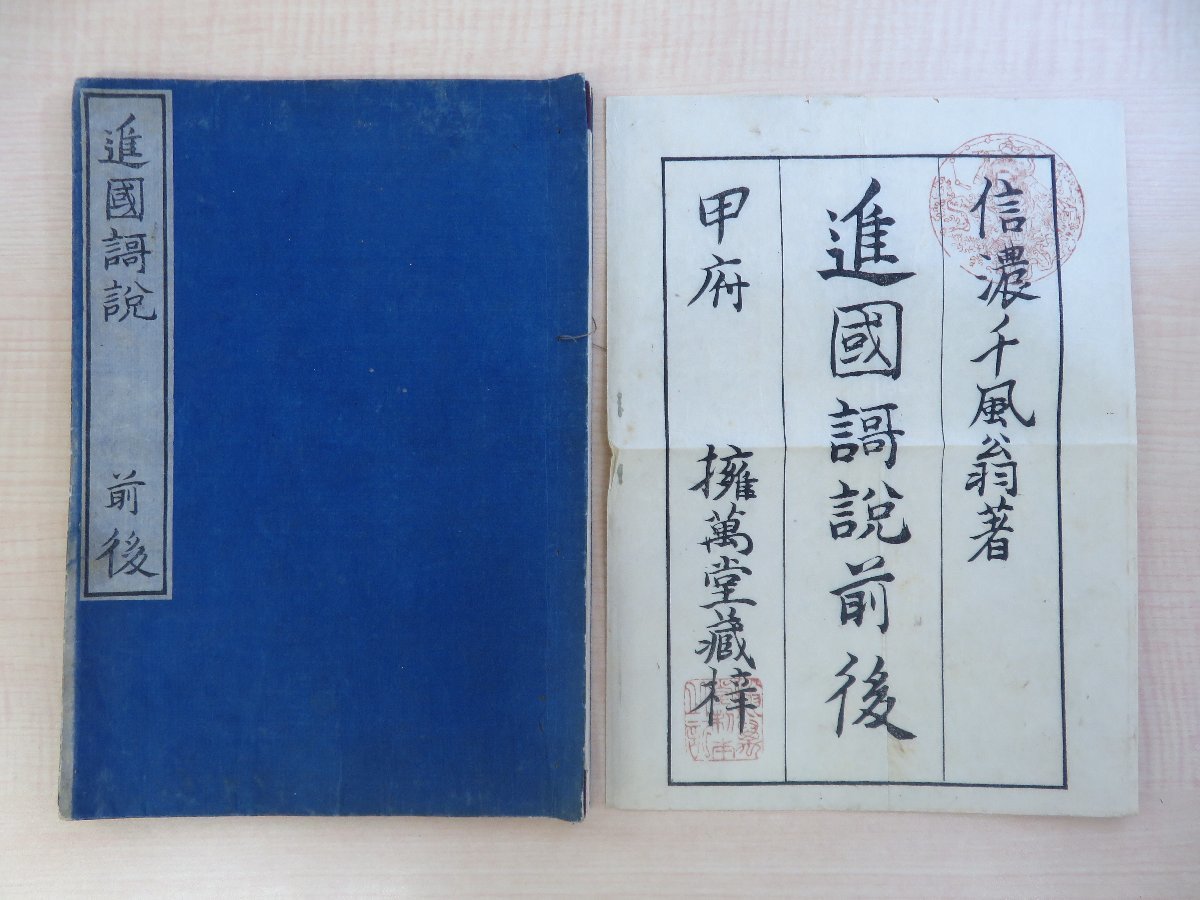 進國謌說 前後
信濃千風翁著
進國謌說前後
甲府 擁萬堂藏梓